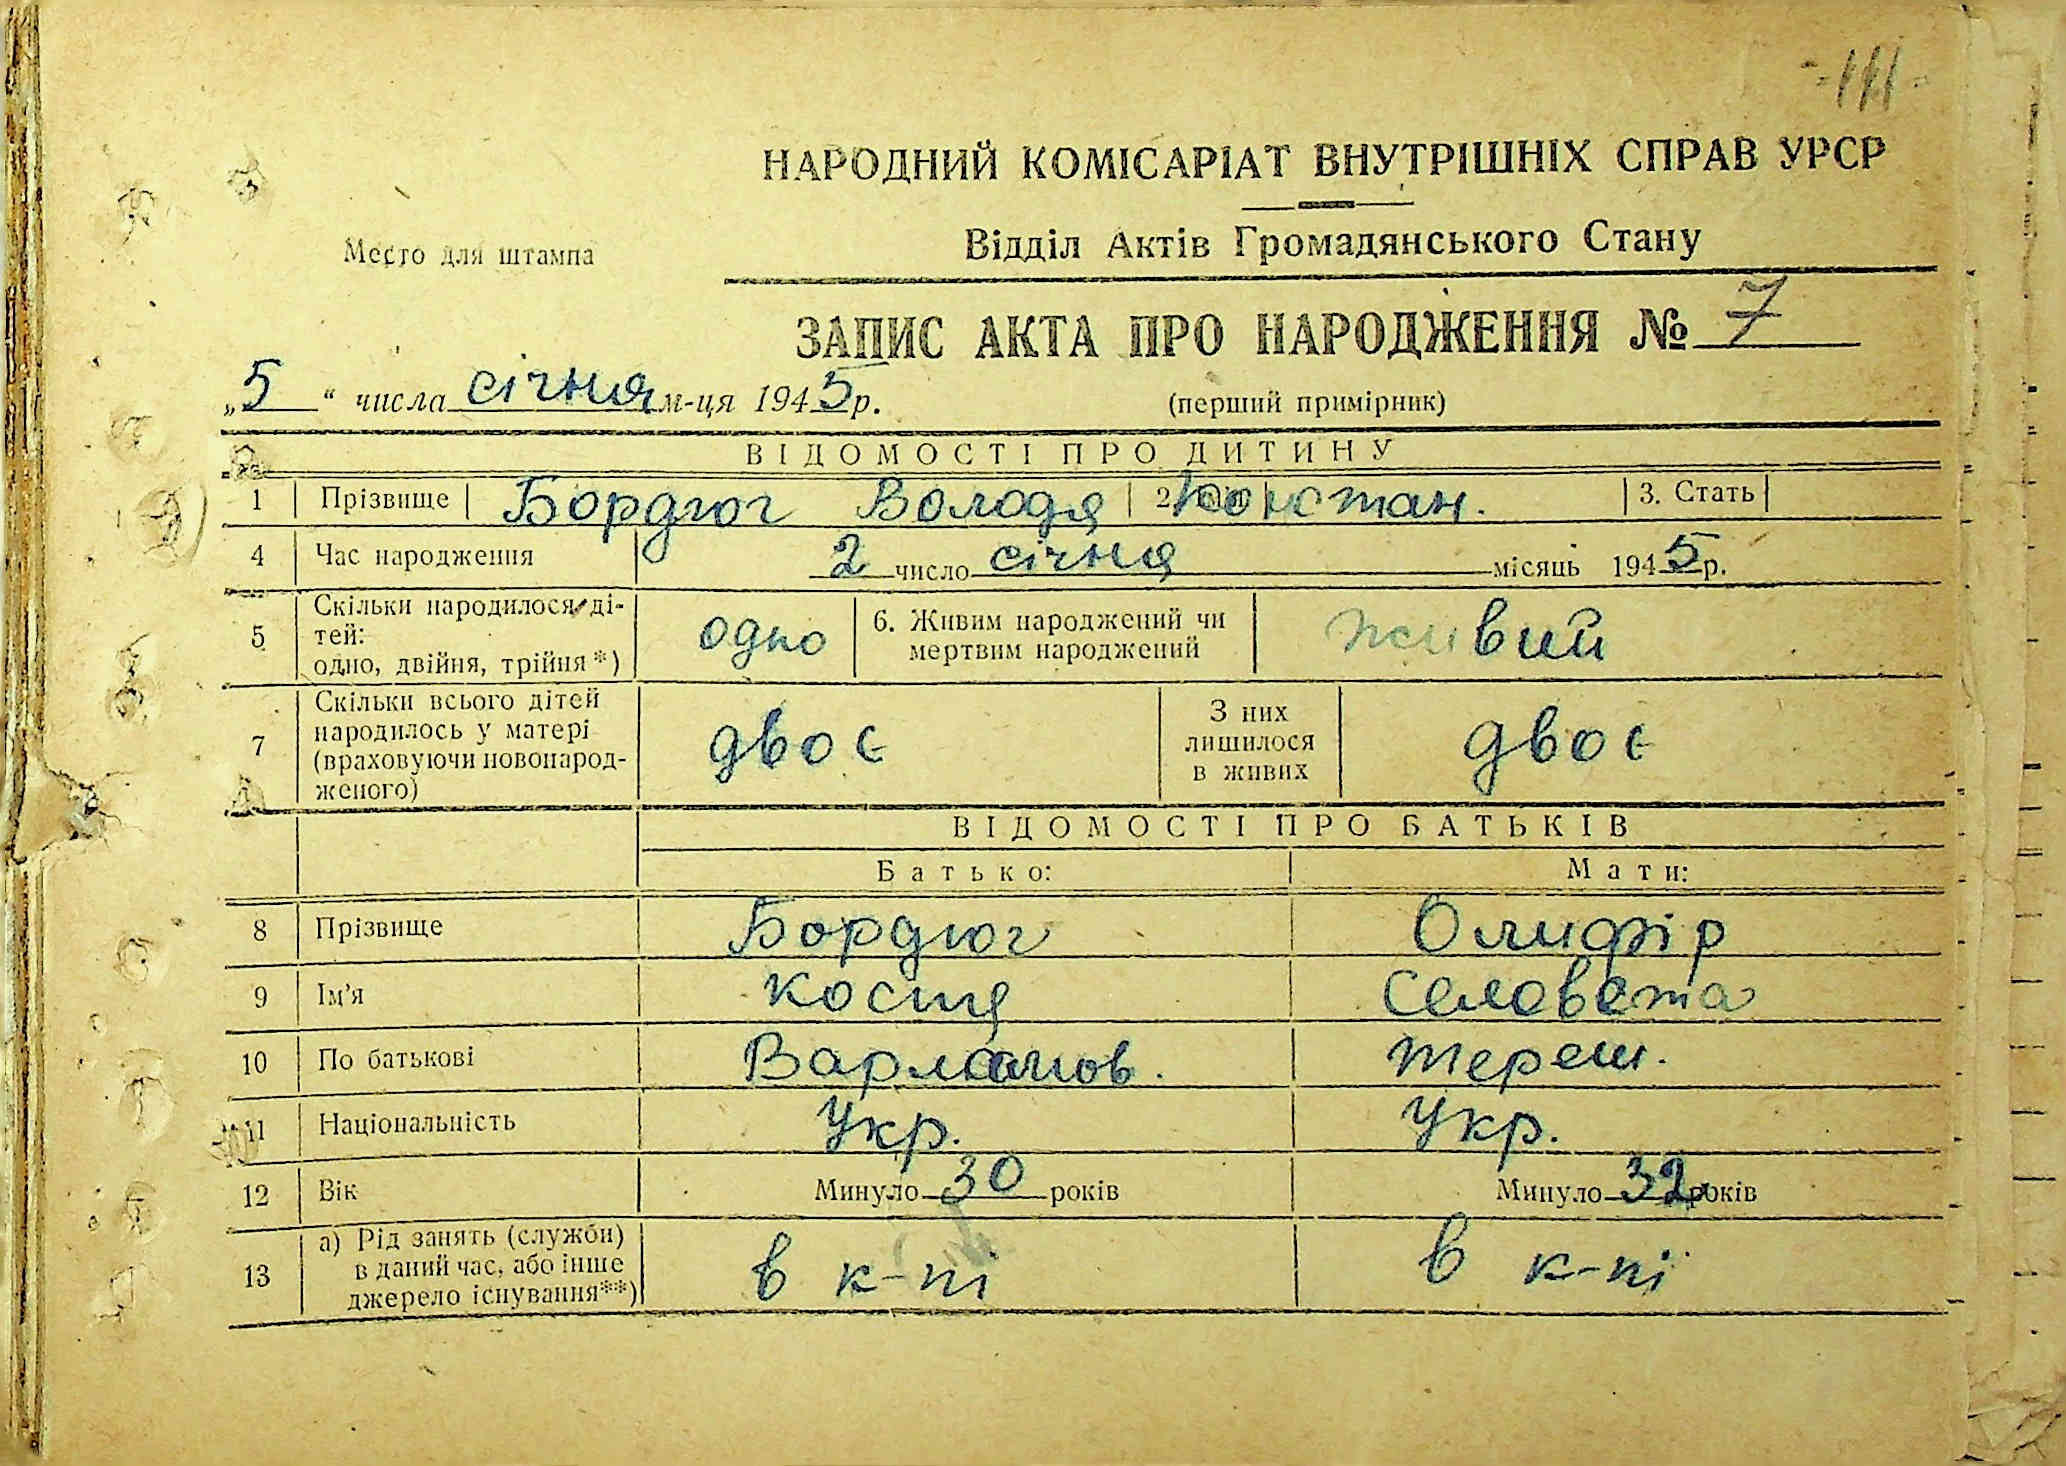 -111-
НАРОДНИЙ КОМІСАРІАТ ВНУТРІШНІХ СПРАВ УРСР
Место для штампа
Відділ Актів Громадянського Стану
ЗАПИС АКТА ПРО НАРОДЖЕННЯ № 7
„5“ числа січня м-ця 1945 р. (перший примірник)
ВІДОМОСТІ ПРО ДИТИНУ
1 Прізвище Бордюг Володя 2. Констан. 3. Стать
4 Час народження 2 число січня місяць 1945 р.
5 Скільки народилося ді-
тей:
одно, двійня, трійня*) одно 6. Живим народжений чи
мертвим народжений живий
7 Скільки всього дітей
народилось у матері
(враховуючи новонарод-
женого) двоє З них
лишилося
в живих двоє
ВІДОМОСТІ ПРО БАТЬКІВ
Батько: Мати:
8 Прізвище Бордюг Олифір
9 Ім’я Костя Селовета
10 По батькові Варламов. Тереш.
11 Національність Укр. Укр.
12 Вік Минуло 30 років Минуло 32 років
13 а) Рід занять (служби)
в даний час, або інше
джерело існування**) в к-пі в к-пі